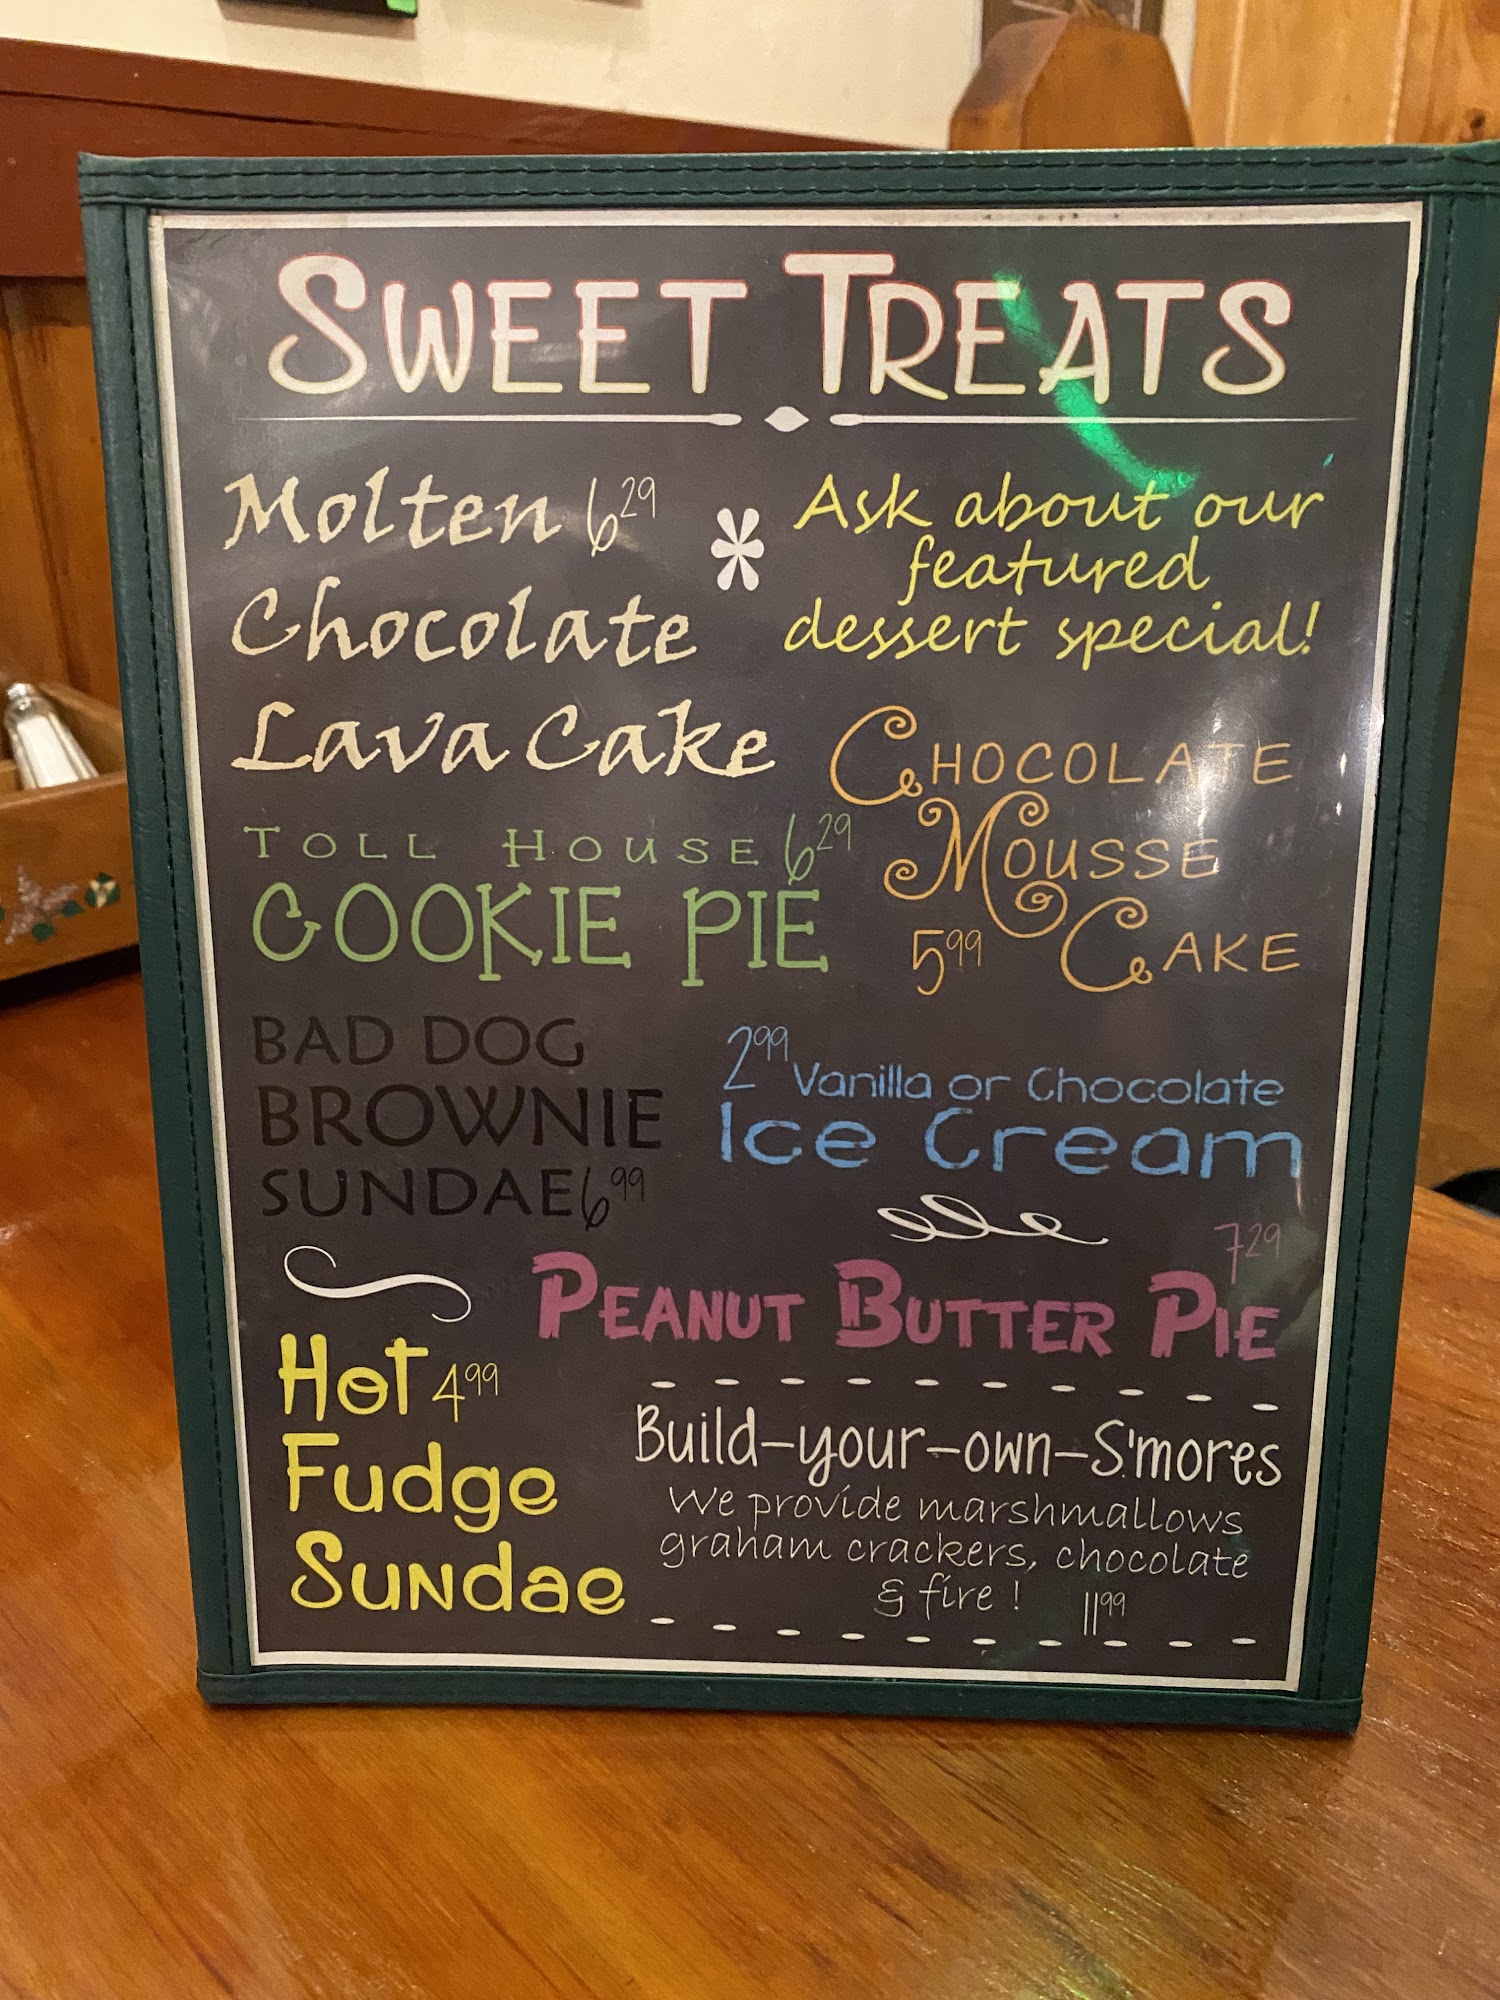 SWEET TREATS
Molten 6.29
Chocolate
Lava Cake
* Ask about our
featured
dessert special!
TOLL HOUSE 6.29
COOKIE PIE
CHOCOLATE
MOUSSE
5.99 CAKE
BAD DOG
BROWNIE
SUNDAE 6.99
2.99 Vanilla or Chocolate
Ice Cream
7.29
PEANUT BUTTER PIE
Hot 4.99
Fudge
Sundae
Build-your-own-S'mores
We provide marshmallows
graham crackers, chocolate
& fire! 11.99